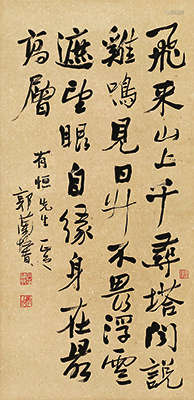 飛来山上千尋塔聞說
雞鳴見日升不畏浮雲
遮望眼自缘身在最
高層
有恒先生正之
郭蘭贇